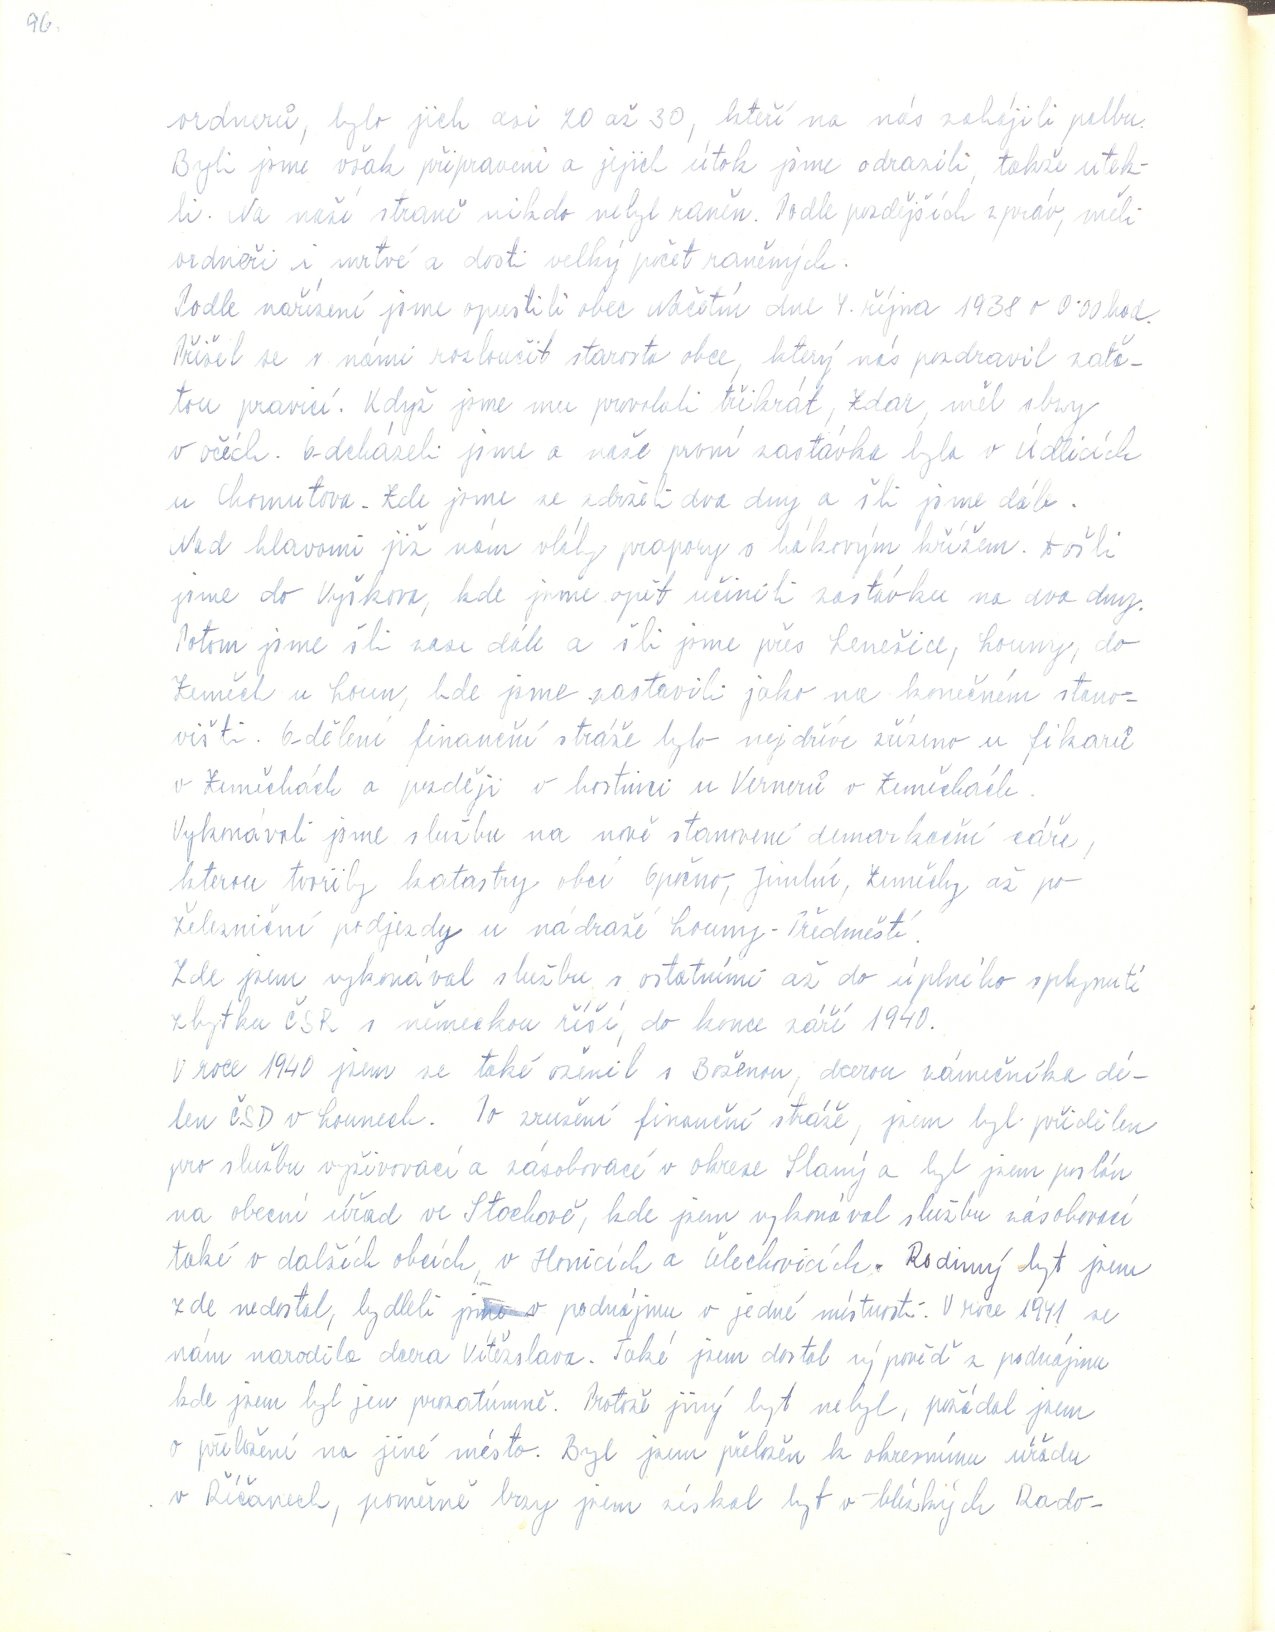 96.
ordnerů, bylo jich asi 20 až 30, kteří na nás zahájili palbu.
Byli jsme však připraveni a jejich útok jsme odrazili, takže utek-
li. Na naší straně nikdo nebyl raněn. Podle pozdějších zpráv, měli
ordneři i mrtvé a dosti velký počet raněných.
Podle nařízení jsme opustili obec Načetín dne 4. října 1938 o 0·00 hod.
Přišel se s námi rozloučit starosta obce, který nás pozdravil zatě-
tou pravicí. Když jsme mu provolali třikrát, Zdar, měl slzy
v očích. Odcházeli jsme a naše první zastávka byla v Údlicích
u Chomutova. Zde jsme se zdrželi dva dny a šli jsme dále.
Nad hlavami již nám vlály prapory s hákovým křížem. Došli
jsme do Vyškova, kde jsme opět učinili zastávku na dva dny.
Potom jsme šli zase dále a šli jsme přes Lenešice, Louny, do
Zeměch u Loun, kde jsme zastavili jako na konečném stano-
višti. Oddělení finanční stráže bylo nejdříve zřízeno u Fikarů
v Zeměchách a později v hostinci u Vernerů v Zeměchách.
Vykonávali jsme službu na nově stanovené demarkační čáře,
kterou tvořily katastry obcí Opočno, Jimlín, Zeměchy až po
železniční podjezdy u nádraží Louny-Předměstí.
Zde jsem vykonával službu s ostatními až do úplného splynutí
zbytku ČSR s německou říší, do konce září 1940.
V roce 1940 jsem se také oženil s Boženou, dcerou zámečníka dí-
len ČSD v Lounech. Po zrušení finanční stráže, jsem byl přidělen
pro službu vyživovací a zásobovací v okrese Slaný a byl jsem poslán
na obecní úřad ve Stochově, kde jsem vykonával službu zásobovací
také v dalších obcích, v Honicích a Čelechovicích. Rodinný byt jsem
zde nedostal, bydleli jsme v podnájmu v jedné místnosti. V roce 1941 se
nám narodila dcera Vítězslava. Také jsem dostal výpověď z podnájmu
kde jsem byl jen prozatímně. Protože jiný byt nebyl, požádal jsem
o přeložení na jiné místo. Byl jsem přeložen k okresnímu úřadu
v Říčanech, poměrně brzy jsem získal byt v blízkých Rado-